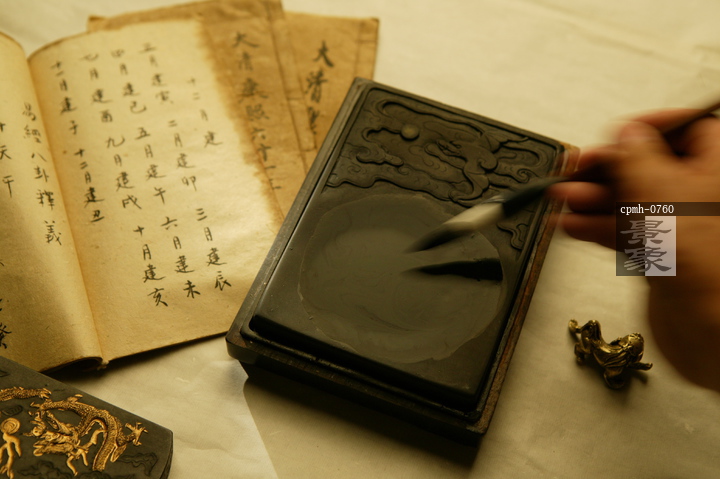 十二月建
正月建寅 二月建卯 三月建辰
四月建巳 五月建午 六月建未
七月建酉 九月建戌 十月建亥
十一月建子 十二月建丑
易經八卦釋義
十天干
大清
大清
cpmh-0760